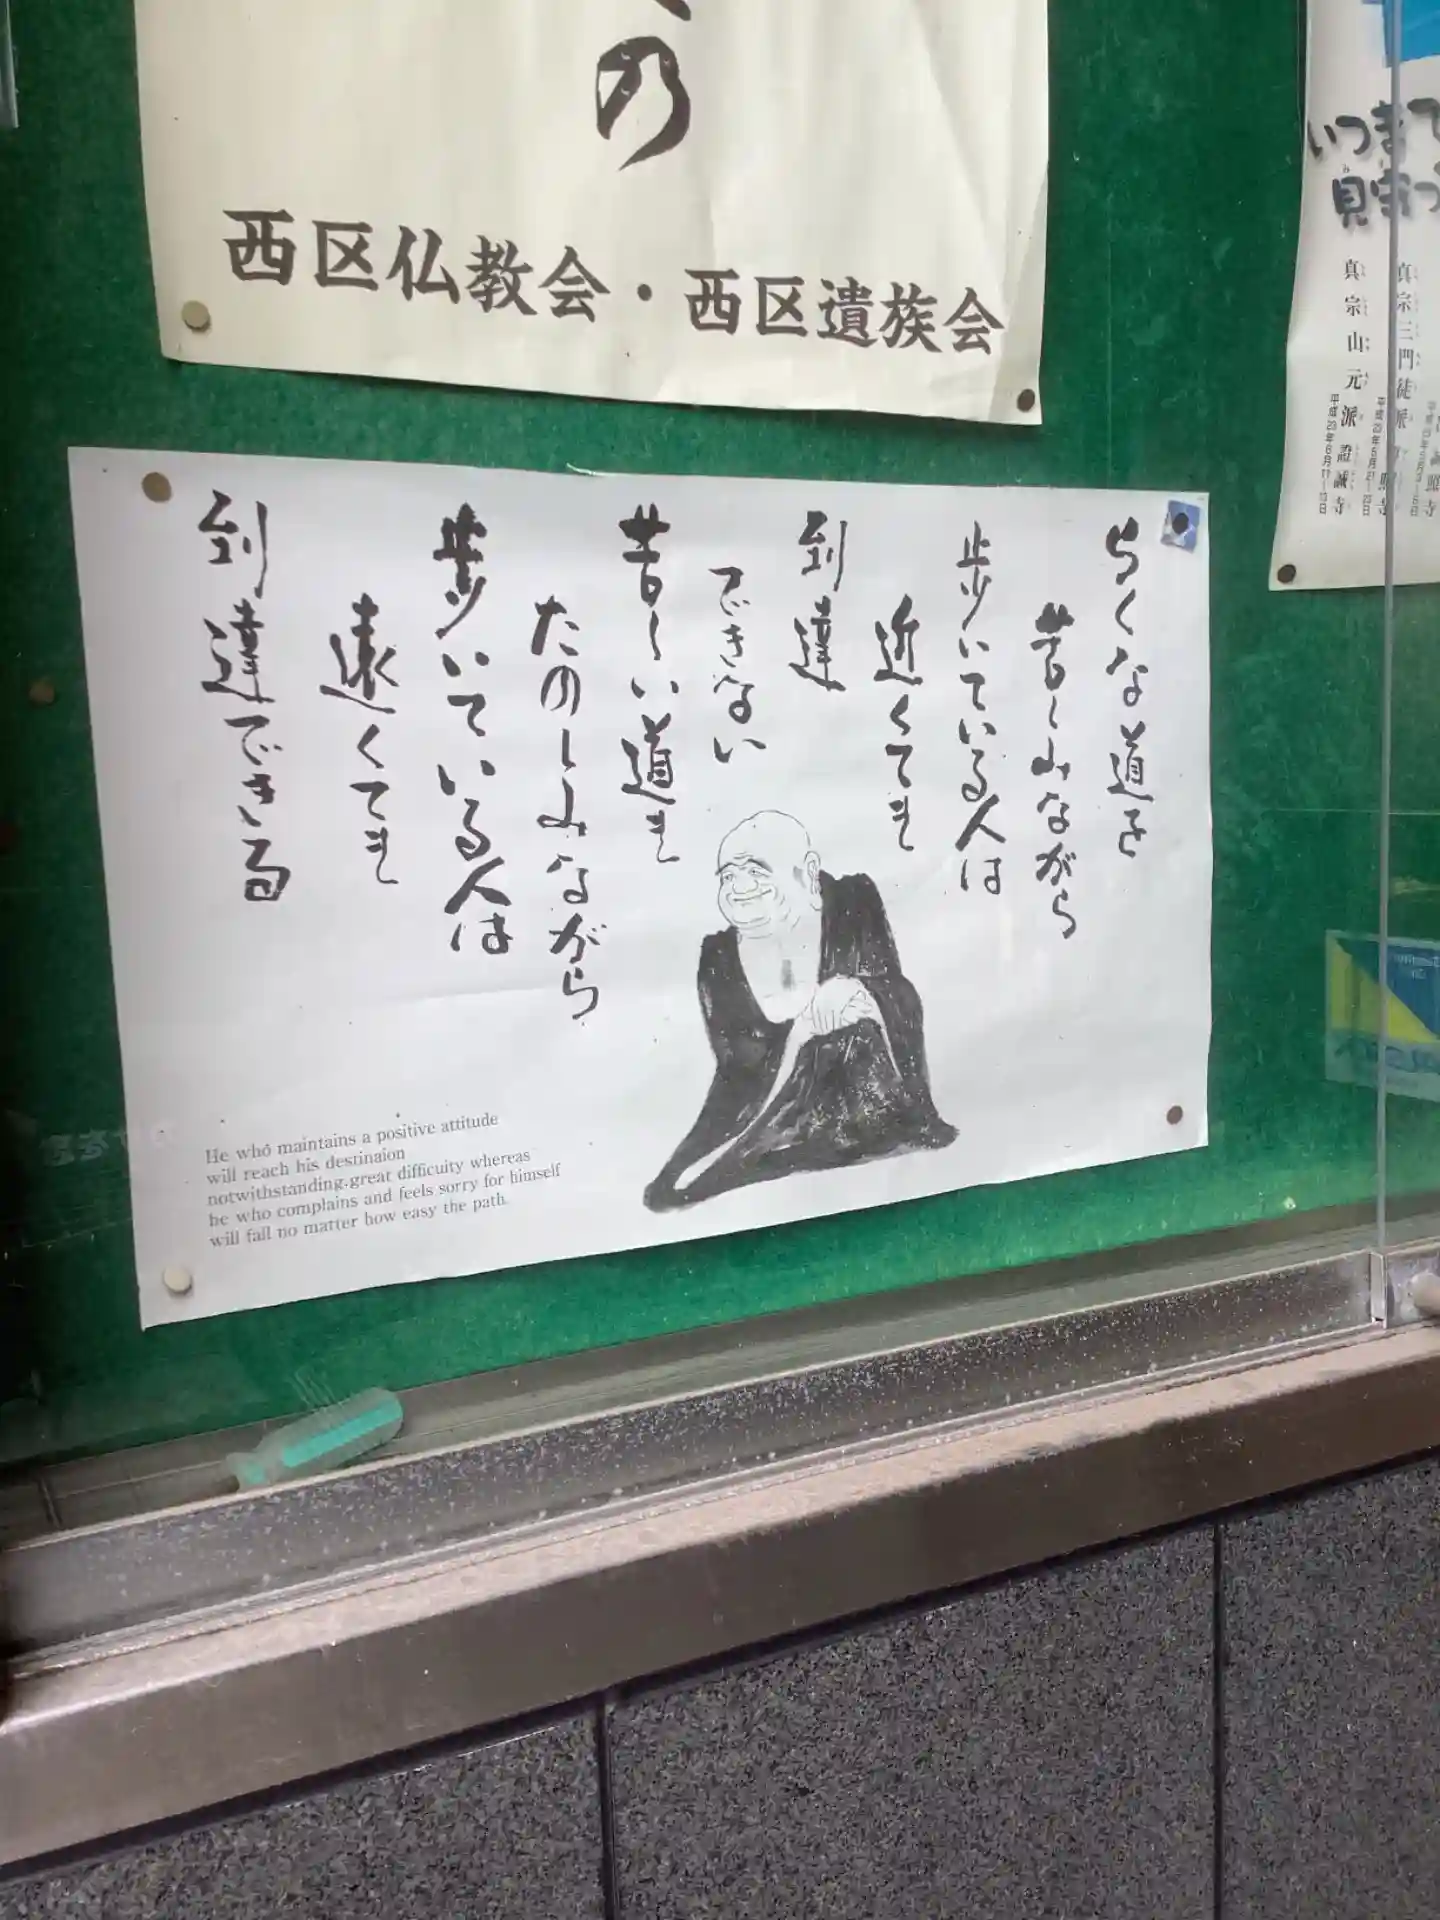 の
西区仏教会・西区遺族会
らくな道を
苦しみながら
歩いている人は
近くても
到達
できない
苦しい道も
たのしみながら
歩いている人は
遠くても
到達できる
He who maintains a positive attitude
will reach his destinaion
notwithstanding.great difficuity whereas
he who complains and feels sorry for himself
will fail no matter how easy the path.
いつまで
見守っ
真宗三門徒派
真宗山元派 證誠寺